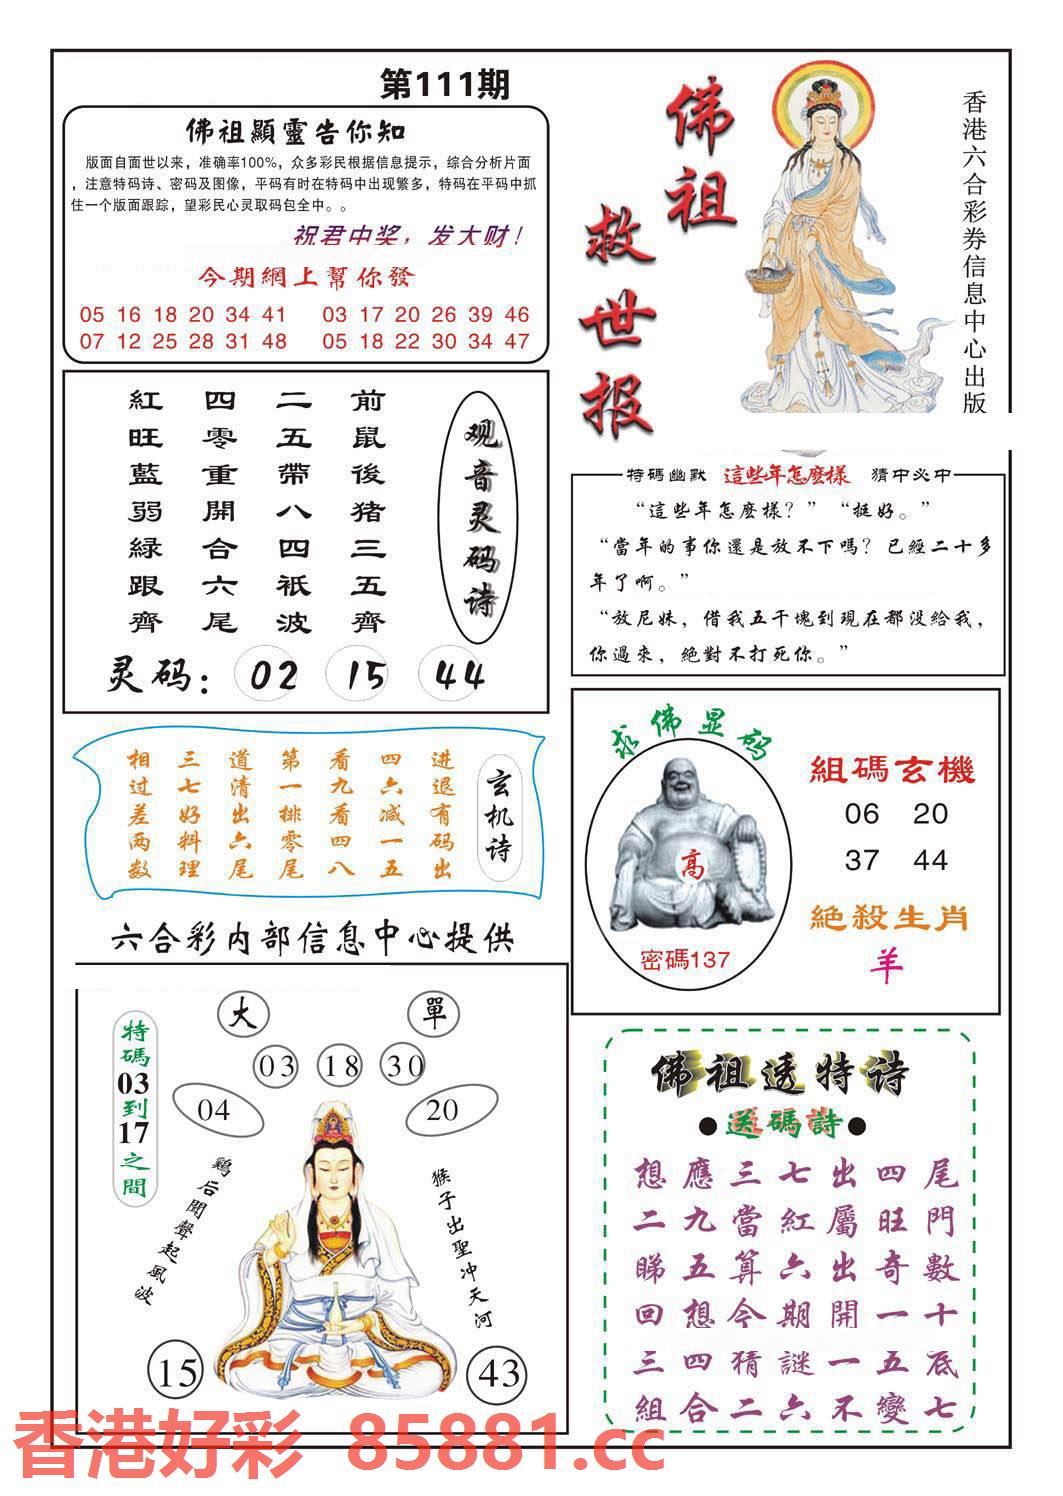 第111期
佛祖顯靈告你知
版面自面世以来，准确率100%，众多彩民根据信息提示，综合分析片面
，注意特码诗、密码及图像，平码有时在特码中出现繁多，特码在平码中抓
住一个版面跟踪，望彩民心灵取码包全中。。
祝君中奖，发大财！
今期網上幫你發
05 16 18 20 34 41 03 17 20 26 39 46
07 12 25 28 31 48 05 18 22 30 34 47
佛祖
救世报
香港六合彩券信息中心出版
观音灵码诗
前鼠後猪三五齊
二五帶八四衹波
四零重開合六尾
紅旺藍弱緑跟齊
灵码：02 15 44
特碼幽默 這些年怎麽樣 猜中必中
“這些年怎麽樣？”“挺好。”
“當年的事你還是放不下嗎？已經二十多
年了啊。”
“放尼妹，借我五千塊到現在都没給我，
你過來，絕對不打死你。”
玄机诗
进退有码出
四六减一五
看九看四八
第一排零尾
道清出六尾
三七好料理
相过差两数
求佛显码
高
密碼137
組碼玄機
06 20
37 44
絕殺生肖
羊
六合彩内部信息中心提供
特碼03到17之間
大 單
03 18 30
04 20
鷄后聞聲起風波
猴子出聖冲天河
15 43
佛祖透特诗
●送碼詩●
想應三七出四尾
二九當紅屬旺門
睇五算六出奇數
回想今期開一十
三四猜謎一五底
組合二六不變七
香港好彩 85881.cc